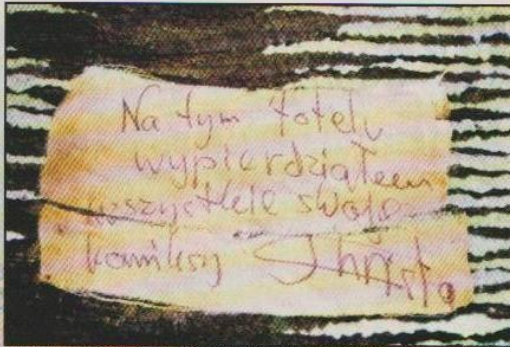 Na tym fotelu
wypierdziałem
wszystkie swoje
komiksy Christa